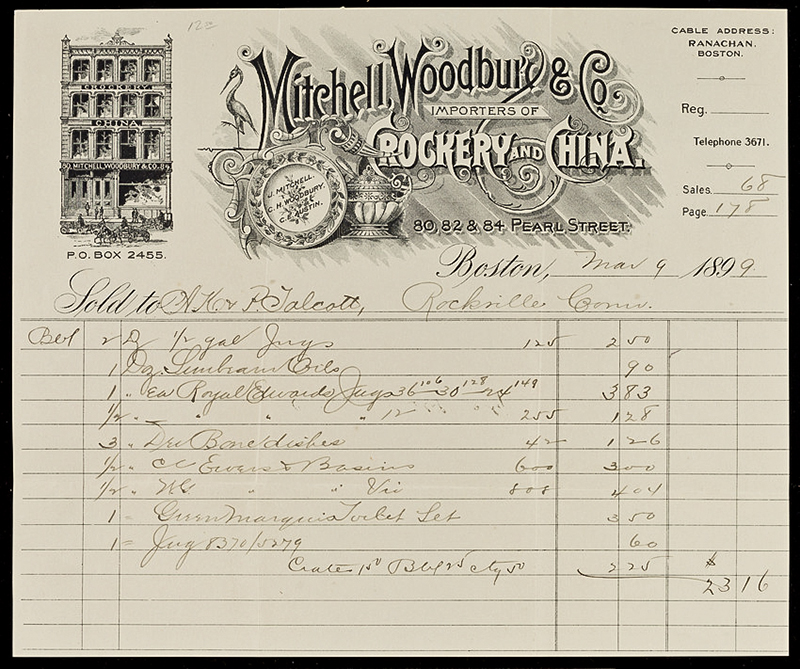 12 00
CROCKERY.
CHINA.
80, MITCHELL, WOODBURY & CO. 84
P.O. BOX 2455.
Mitchell, Woodbury & Co.
IMPORTERS OF
CROCKERY AND CHINA.
J. MITCHELL.
C. H. WOODBURY.
80, 82 & 84 PEARL STREET.
CABLE ADDRESS:
RANACHAN.
BOSTON.
Reg.
Telephone 3671.
Sales 68
Page 178
Boston, Mar 9 1899
Sold to A.K. & P. Talcott, Rockville Conn.
Bbl 2 D 1/2 gal Jugs 125 250
1 Dz Sunbeam Oils 90
1 " Ea Royal Edwards Jugs 36 106 30 128 24 149 383
1/2 " " " 12 " 255 128
3 " Dec Bone dishes 42 126
1/2 " CC Ewers & Basins 600 300
1/2 " WG " " Vic 808 404
1 = Green Marquis Toilet Set 350
1 = Jug 8370/5279 60
Crate 150 Bbl 25 ctg 50 225
$ 23 16